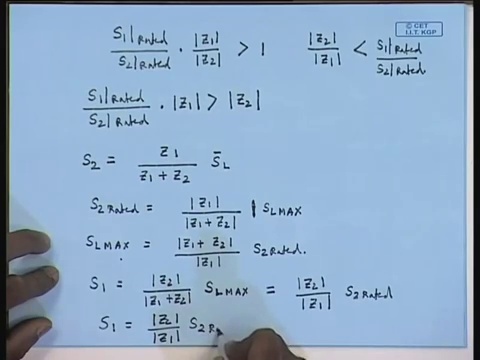 © CET
I.I.T. KGP
S₁|Rated / S₂|Rated · |Z₁| / |Z₂| > 1    |Z₂| / |Z₁| < S₁|Rated / S₂|Rated.
S₁|Rated / S₂|Rated · |Z₁| > |Z₂|
S₂ = Z₁ / Z₁ + Z₂ S̄L
S₂ Rated = |Z₁| / |Z₁ + Z₂| | SLMAX
SLMAX = |Z₁ + Z₂| / |Z₁| S₂ Rated.
S₁ = |Z₂| / |Z₁ + Z₂| SLMAX = |Z₂| / |Z₁| S₂ Rated
S₁ = |Z₂| / |Z₁| S₂ R